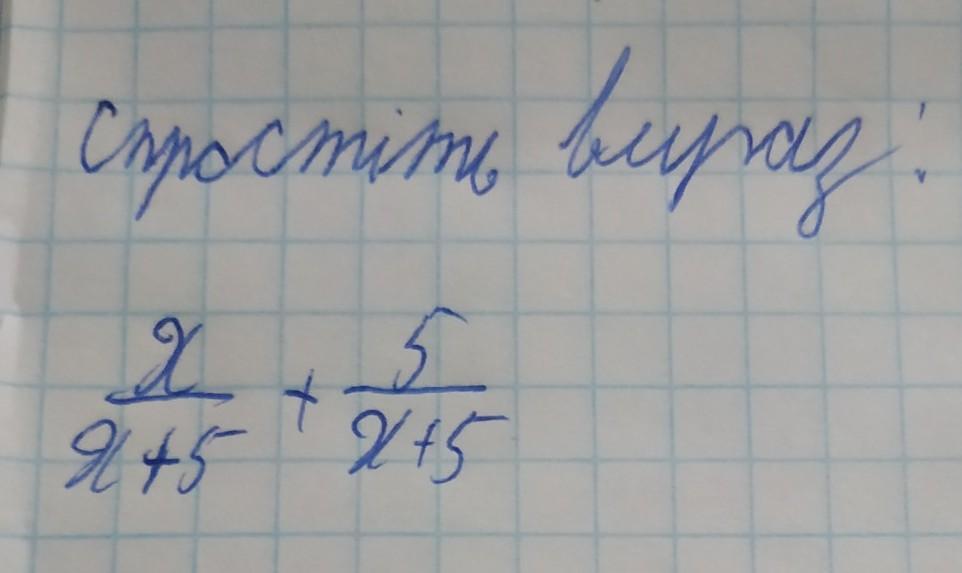 спростіть вираз:
x/(x+5) + 5/(x+5)